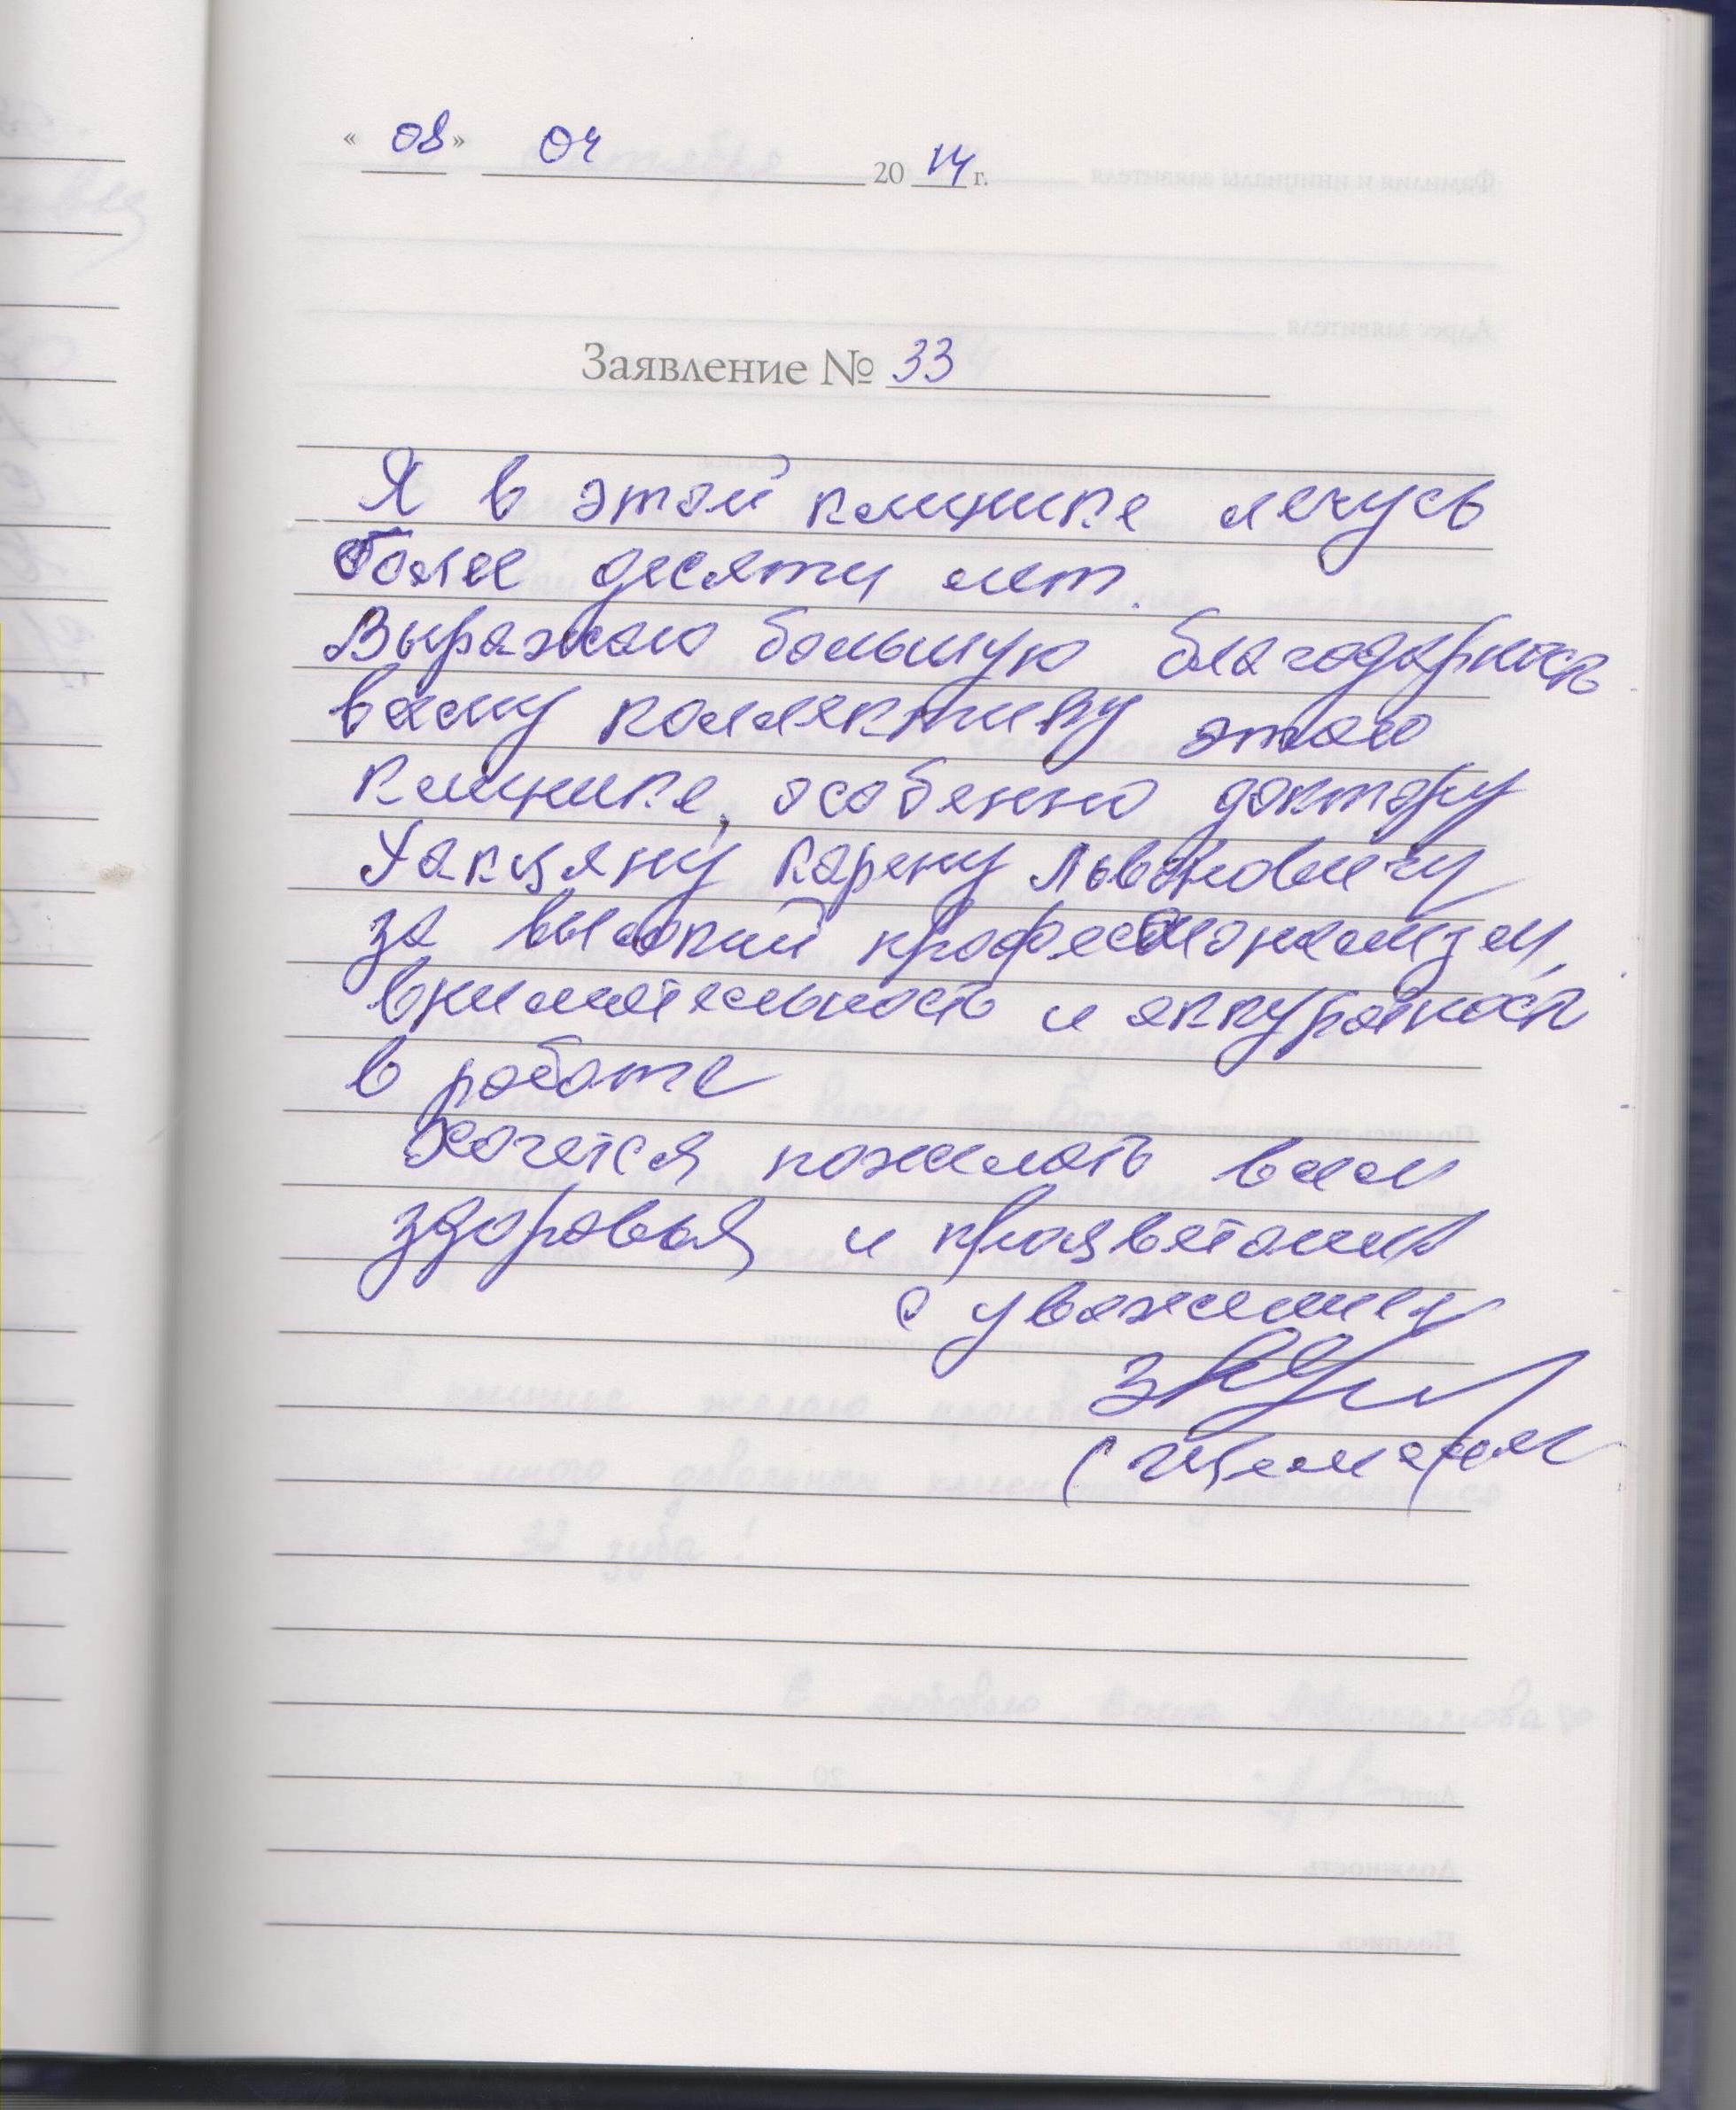 « 08 » 04 2014 г.
Заявление № 33
Я в этой клинике лечусь
более десяти лет.
Выражаю большую благодарность
всему коллективу этой
клинике, особенно доктору
Карену Львовичу
за высокий профессионализм,
внимательность и аккуратность
в работе
Хочется пожелать вам
здоровья и процветания
с уважением